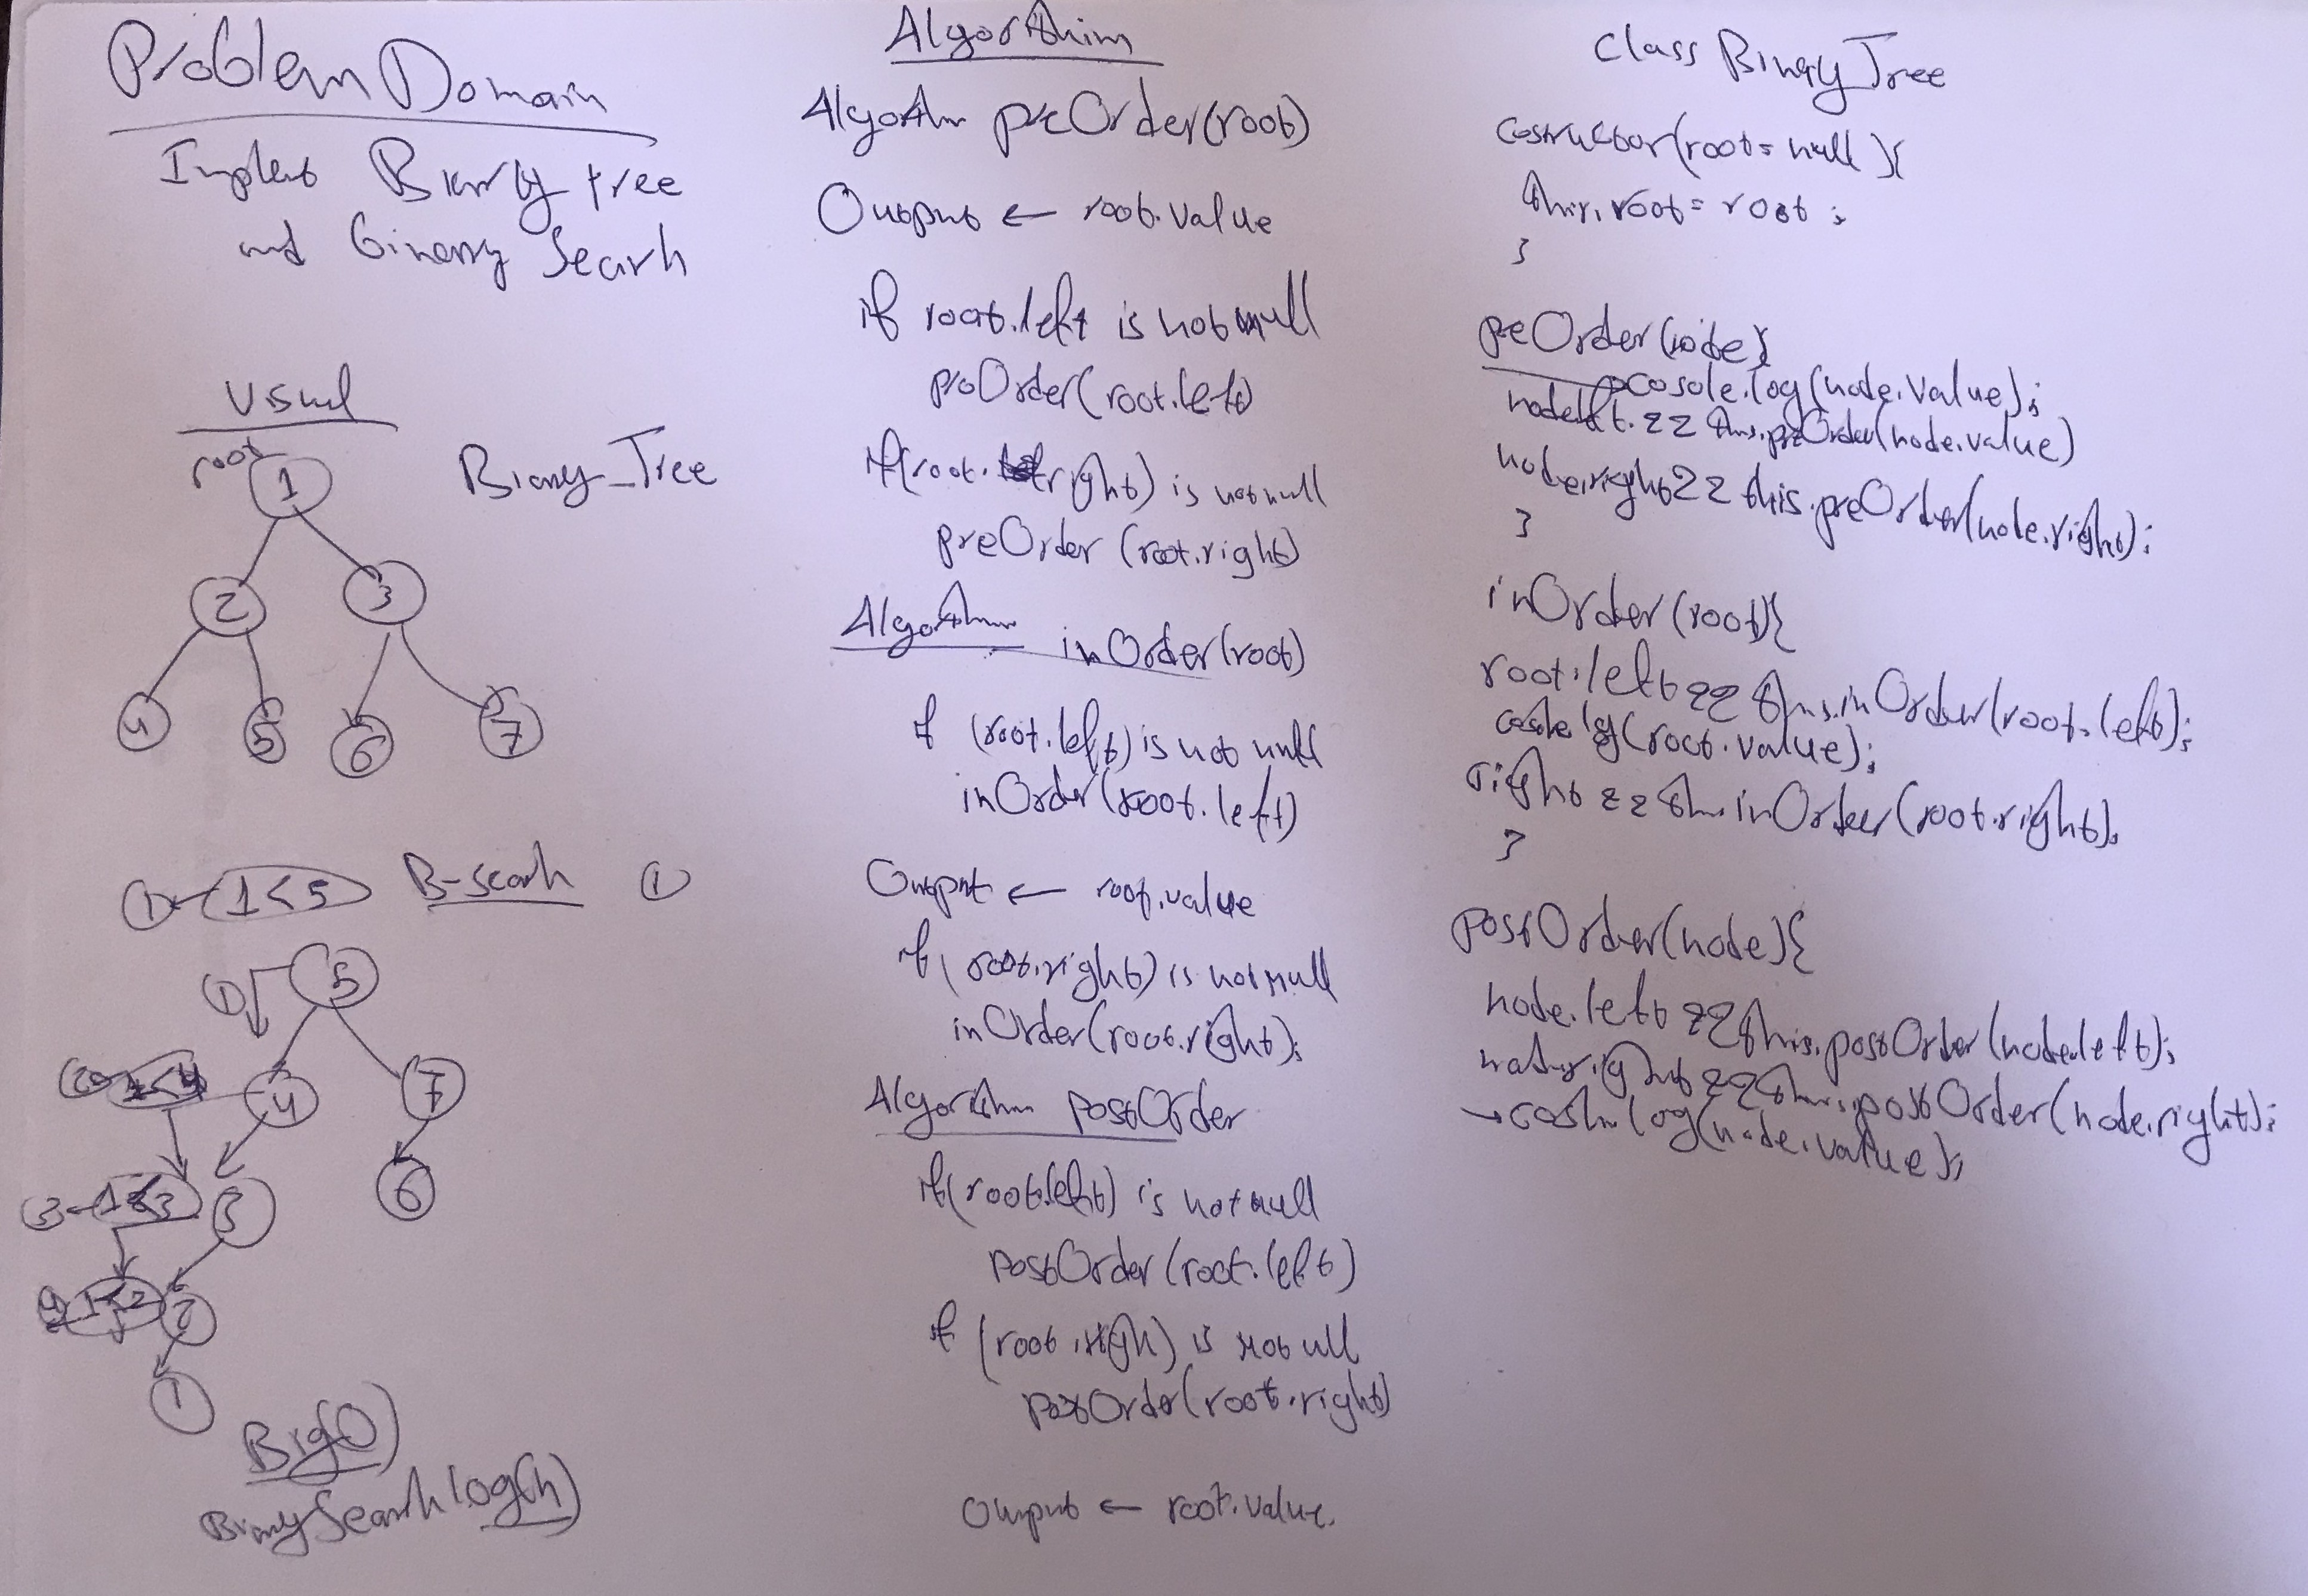 Problem Domain
Implent Binrly tree
and binerry Searh
Visual
root
1
Binary_Tree
2
3
4
5
6
7
1
1<5
B-searh
1
5
1
4
7
3
1<3
3
6
2
1
Big O)
Binary Searh log(h)
Algorithim
Algorithm preOrder(root)
Output ← root.value
if root.left is not null
preOrder(root.left)
if(root.right) is not null
preOrder (root.right)
Algorithm inOrder(root)
if (root.left) is not null
inOrder(root.left)
Output ← root.value
if( root.right) is not null
inOrder(root.right);
Algorithm postOrder
if(root.left) is not null
postOrder (root.left)
if (root.righ) is not ull
postOrder(root.right)
Output ← root.value.
Class Binary_Tree
costructor(root=null){
this.root = root ;
}
preOrder(node){
cosole.log(node.value);
node.left && this.preOrder(node.value)
node.right && this.preOrder(node.right);
}
inOrder(root){
root.left && this.inOrder(root.left);
log(root.value);
right && this.inOrder(root.right);
}
postOrder(node){
node.left && this.postOrder(node.left);
node.right && this.postOrder(node.right);
log(node.value);